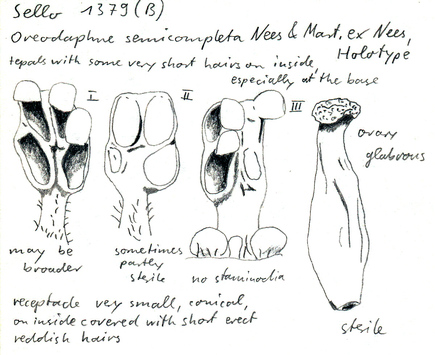 Sello 1379 (B)
Oreodaphne semicompleta Nees & Mart. ex Nees,
Holotype
tepals with some very short hairs on inside,
especially at the base
I
II
III
ovary
glabrous
may be
broader
sometimes
partly
sterile
no staminodia
receptacle very small, conical,
on inside covered with short erect
reddish hairs
sterile